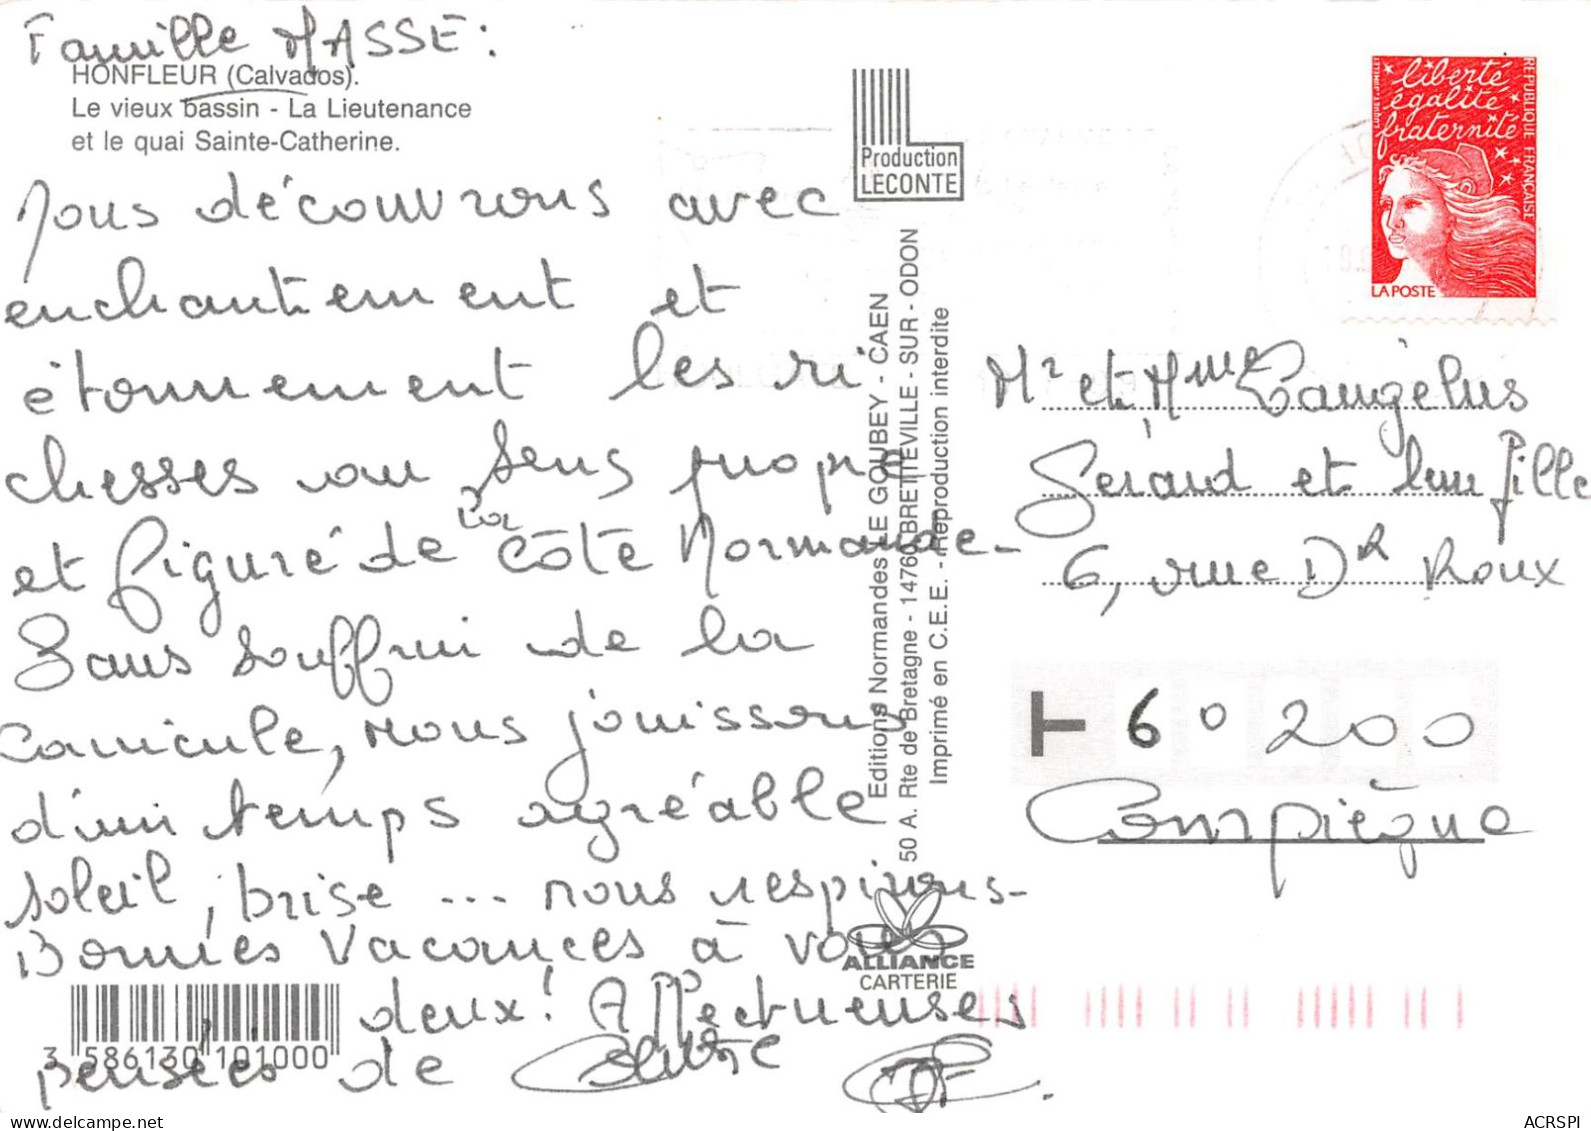 Famille MASSE :
HONFLEUR (Calvados).
Le vieux bassin - La Lieutenance
et le quai Sainte-Catherine.
Nous découvrons avec
enchantement et
étonnement les ri
chesses au sens propre
et figuré de la côte Normande.
Sans souffrir de la
canicule, nous jouissons
d'un temps agréable
soleil, brise ... nous respirons.
Bonnes Vacances à vous
deux ! Affectueuses
pensées de
3 586130 101000
Production
LECONTE
Editions Normandes LE GOUBEY - CAEN
50 A. Rte de Bretagne - 14760 BRETTEVILLE - SUR - ODON
Imprimé en C.E.E. - Reproduction interdite
ALLIANCE
CARTERIE
liberté
égalité
fraternité
REPUBLIQUE FRANÇAISE
LA POSTE
Mr et Mme Langélus
Gérard et leur fille
6, rue Dr Roux
60200
Compiègne
ACRSPI